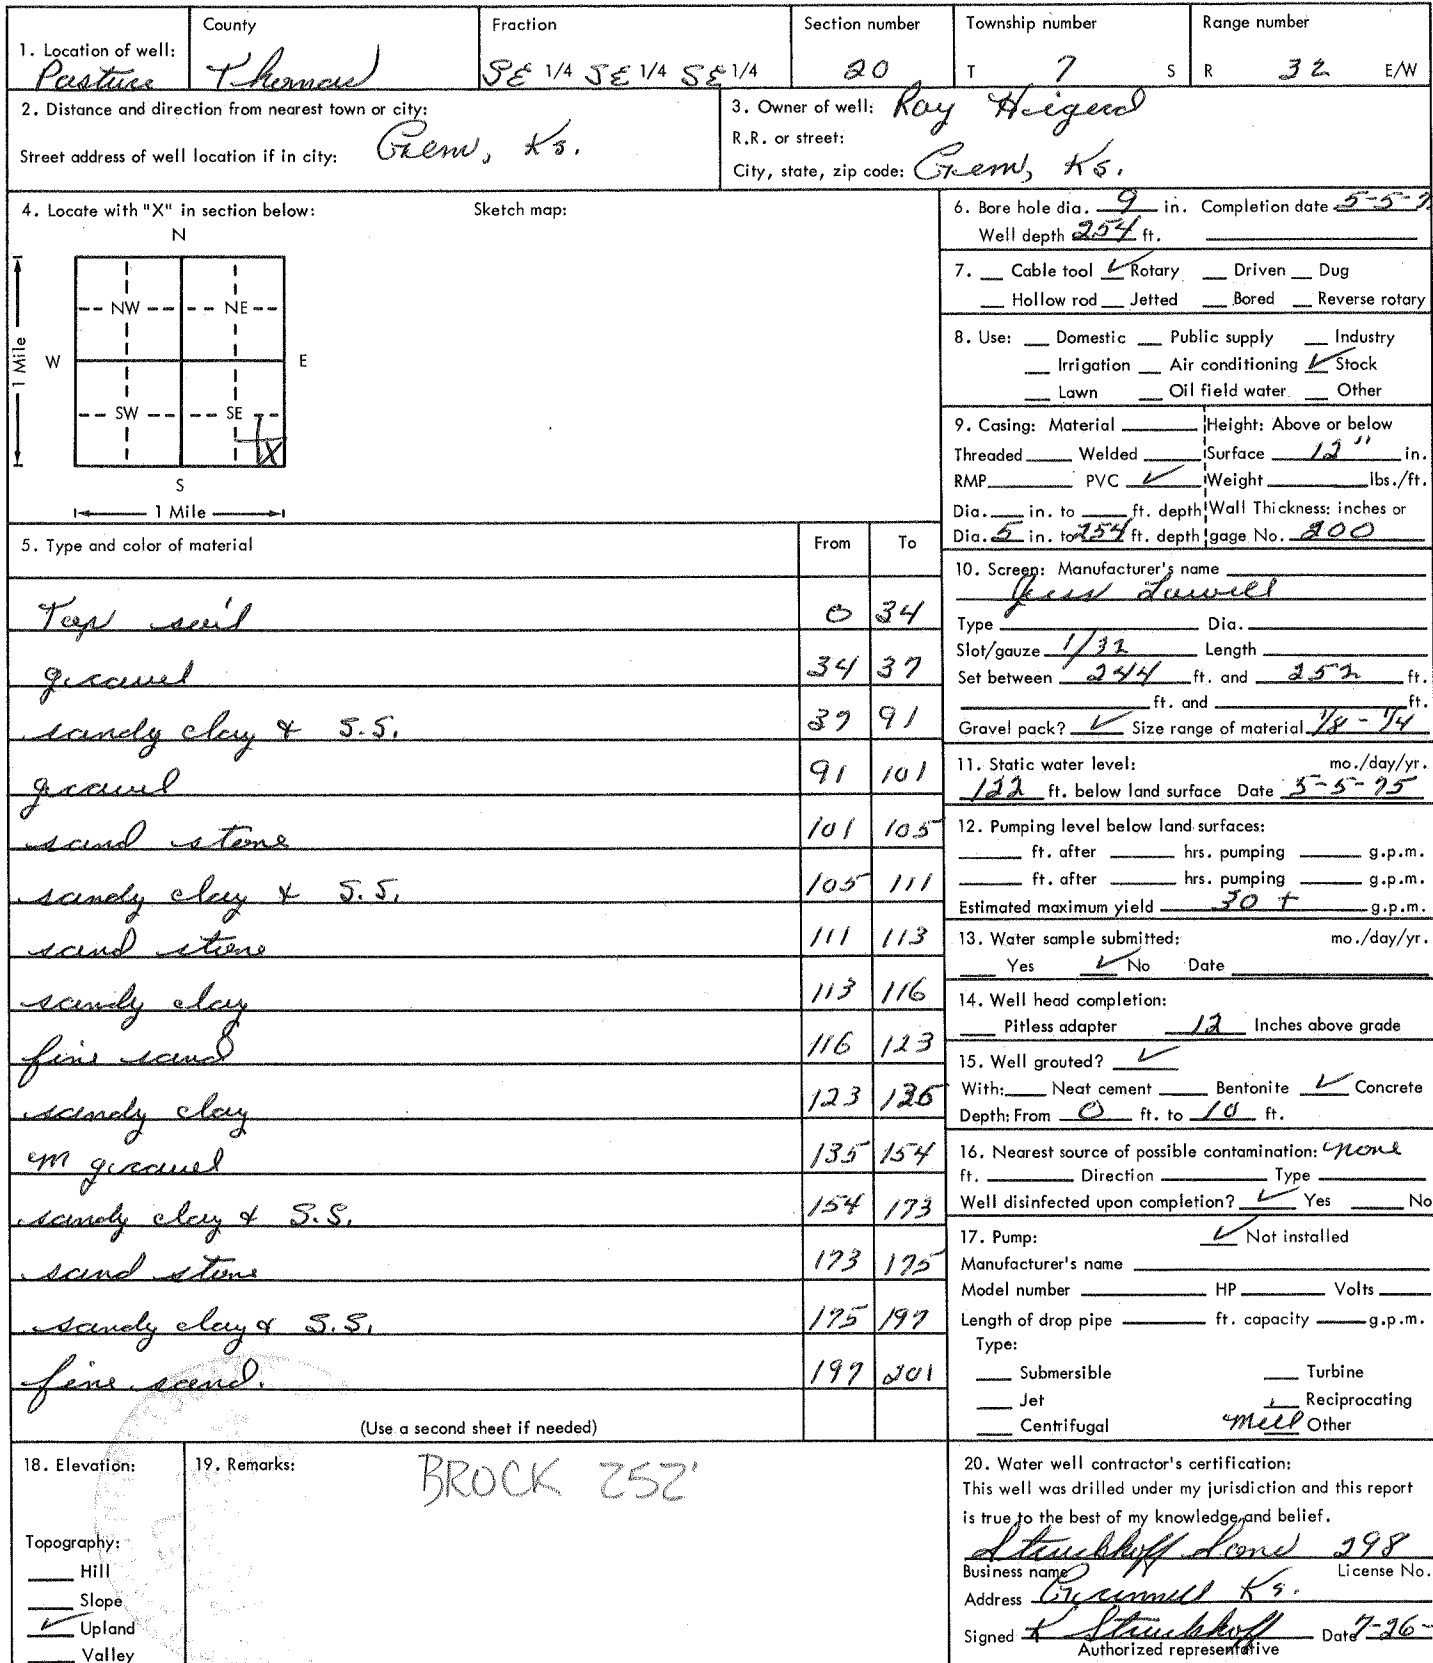 1. Location of well: Pasture
County Thomas
Fraction SE 1/4 SE 1/4 SE 1/4
Section number 20
Township number T 7 S
Range number R 32 E/W
2. Distance and direction from nearest town or city:
Street address of well location if in city: Gem, Ks.
3. Owner of well: Ray Higerd
R.R. or street:
City, state, zip code: Gem, Ks.
4. Locate with "X" in section below: Sketch map:
N
NW NE
W E
1 Mile
SW SE
X
S
1 Mile
5. Type and color of material From To
Top soil 0 34
gravel 34 37
sandy clay & S.S. 37 91
gravel 91 101
sand stone 101 105
sandy clay & S.S. 105 111
sand stone 111 113
sandy clay 113 116
fine sand 116 123
sandy clay 123 135
M gravel 135 154
sandy clay & S.S. 154 173
sand stone 173 175
sandy clay & S.S. 175 197
fine sand. 197 201
(Use a second sheet if needed)
6. Bore hole dia. 9 in. Completion date 5-5-7
Well depth 254 ft.
7. Cable tool ✓ Rotary Driven Dug
Hollow rod Jetted Bored Reverse rotary
8. Use: Domestic Public supply Industry
Irrigation Air conditioning ✓ Stock
Lawn Oil field water Other
9. Casing: Material Height: Above or below
Threaded Welded Surface 12" in.
RMP PVC ✓ Weight lbs./ft.
Dia. in. to ft. depth Wall Thickness: inches or
Dia. 5 in. to 254 ft. depth gage No. 200
10. Screen: Manufacturer's name
Type Dia.
Slot/gauze 1/32 Length
Set between 244 ft. and 252 ft.
ft. and ft.
Gravel pack? ✓ Size range of material 1/8 - 1/4
11. Static water level: mo./day/yr.
122 ft. below land surface Date 5-5-75
12. Pumping level below land surfaces:
ft. after hrs. pumping g.p.m.
ft. after hrs. pumping g.p.m.
Estimated maximum yield 30 + g.p.m.
13. Water sample submitted: mo./day/yr.
Yes ✓ No Date
14. Well head completion:
Pitless adapter 12 Inches above grade
15. Well grouted? ✓
With: Neat cement Bentonite ✓ Concrete
Depth: From 0 ft. to 10 ft.
16. Nearest source of possible contamination: none
ft. Direction Type
Well disinfected upon completion? ✓ Yes No
17. Pump: ✓ Not installed
Manufacturer's name
Model number HP Volts
Length of drop pipe ft. capacity g.p.m.
Type:
Submersible Turbine
Jet Reciprocating
Centrifugal Mill Other
18. Elevation:
Topography:
Hill
Slope
✓ Upland
Valley
19. Remarks: BROCK 252'
20. Water well contractor's certification:
This well was drilled under my jurisdiction and this report
is true to the best of my knowledge and belief.
Struckhoff Sons 298
Business name License No.
Address Grinnell Ks.
Signed K Struckhoff Date 7-26-
Authorized representative